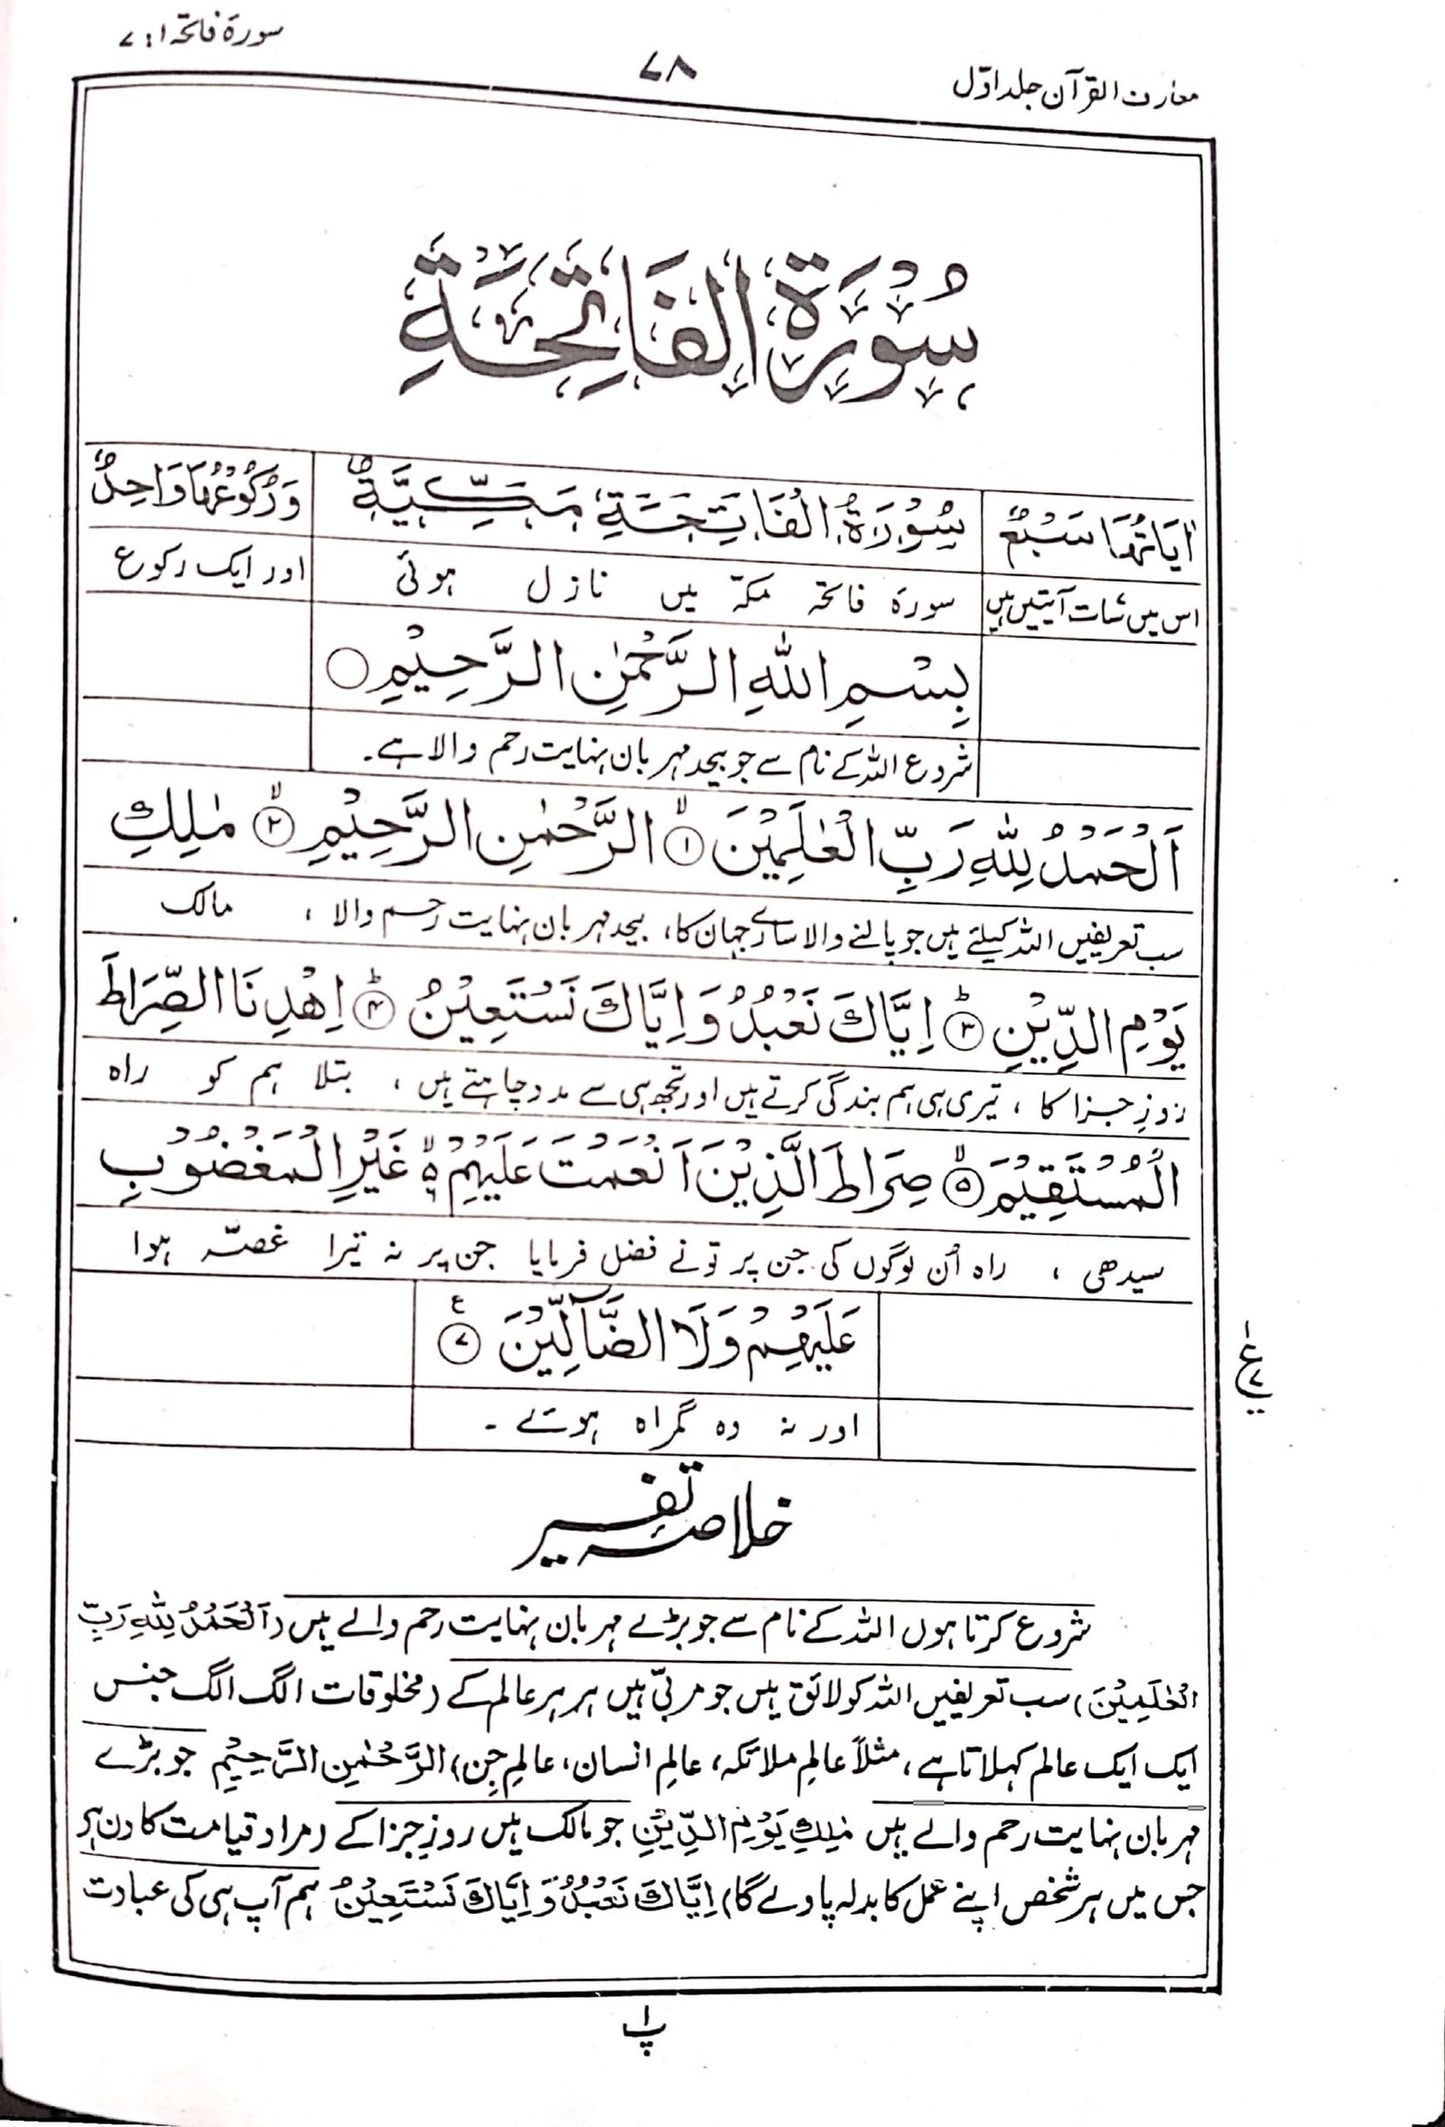 معارف القرآن جلد اوّل
۷۸
سورۃ فاتحہ ۱: ۷
سُوْرَةُ الْفَاتِحَةِ
اٰيَاتُهَا سَبْعٌ
سُوْرَةُ الْفَاتِحَةِ مَكِّيَّةٌ
وَرُكُوْعُهَا وَاحِدٌ
اس میں سات آیتیں ہیں
سورۃ فاتحہ مکہّ میں نازل ہوئی
اور ایک رکوع
بِسْمِ اللّٰهِ الرَّحْمٰنِ الرَّحِيْمِ
شروع اللہ کے نام سے جو بیحد مہربان نہایت رحم والا ہے۔
اَلْحَمْدُ لِلّٰهِ رَبِّ الْعٰلَمِيْنَ ۙ﴿۱﴾ الرَّحْمٰنِ الرَّحِيْمِ ۙ﴿۲﴾ مٰلِكِ
سب تعریفیں اللہ کیلئے ہیں جو پالنے والا سارے جہان کا، بیحد مہربان نہایت رحم والا ، مالک
يَوْمِ الدِّيْنِ ؕ﴿۳﴾ اِيَّاكَ نَعْبُدُ وَاِيَّاكَ نَسْتَعِيْنُ ؕ﴿۴﴾ اِهْدِنَا الصِّرَاطَ
روزِ جزا کا ، تیری ہی ہم بندگی کرتے ہیں اور تجھ ہی سے مدد چاہتے ہیں ، بتلا ہم کو راہ
الْمُسْتَقِيْمَ ۙ﴿۵﴾ صِرَاطَ الَّذِيْنَ اَنْعَمْتَ عَلَيْهِمْ ۙ۬ۥ غَيْرِ الْمَغْضُوْبِ
سیدھی ، راہ اُن لوگوں کی جن پر تو نے فضل فرمایا جن پر نہ تیرا غصّہ ہوا
عَلَيْهِمْ وَلَا الضَّآلِّيْنَ ﴿۷﴾ ع
اور نہ وہ گمراہ ہوئے ۔
خلاصۂ تفسیر
شروع کرتا ہوں اللہ کے نام سے جو بڑے مہربان نہایت رحم والے ہیں (اَلْحَمْدُ لِلّٰهِ رَبِّ
الْعٰلَمِيْنَ) سب تعریفیں اللہ کو لائق ہیں جو مربّی ہیں ہر ہر عالم کے (مخلوقات الگ الگ جنس
ایک ایک عالم کہلاتا ہے، مثلاً عالمِ ملائکہ، عالمِ انسان، عالمِ جِن) الرَّحْمٰنِ الرَّحِيْمِ جو بڑے
مہربان نہایت رحم والے ہیں مٰلِكِ يَوْمِ الدِّيْنِ جو مالک ہیں روزِ جزا کے (مراد قیامت کا دن ہے
جس میں ہر شخص اپنے عمل کا بدلہ پاوے گا) اِيَّاكَ نَعْبُدُ وَاِيَّاكَ نَسْتَعِيْنُ ہم آپ ہی کی عبادت
پ ۱